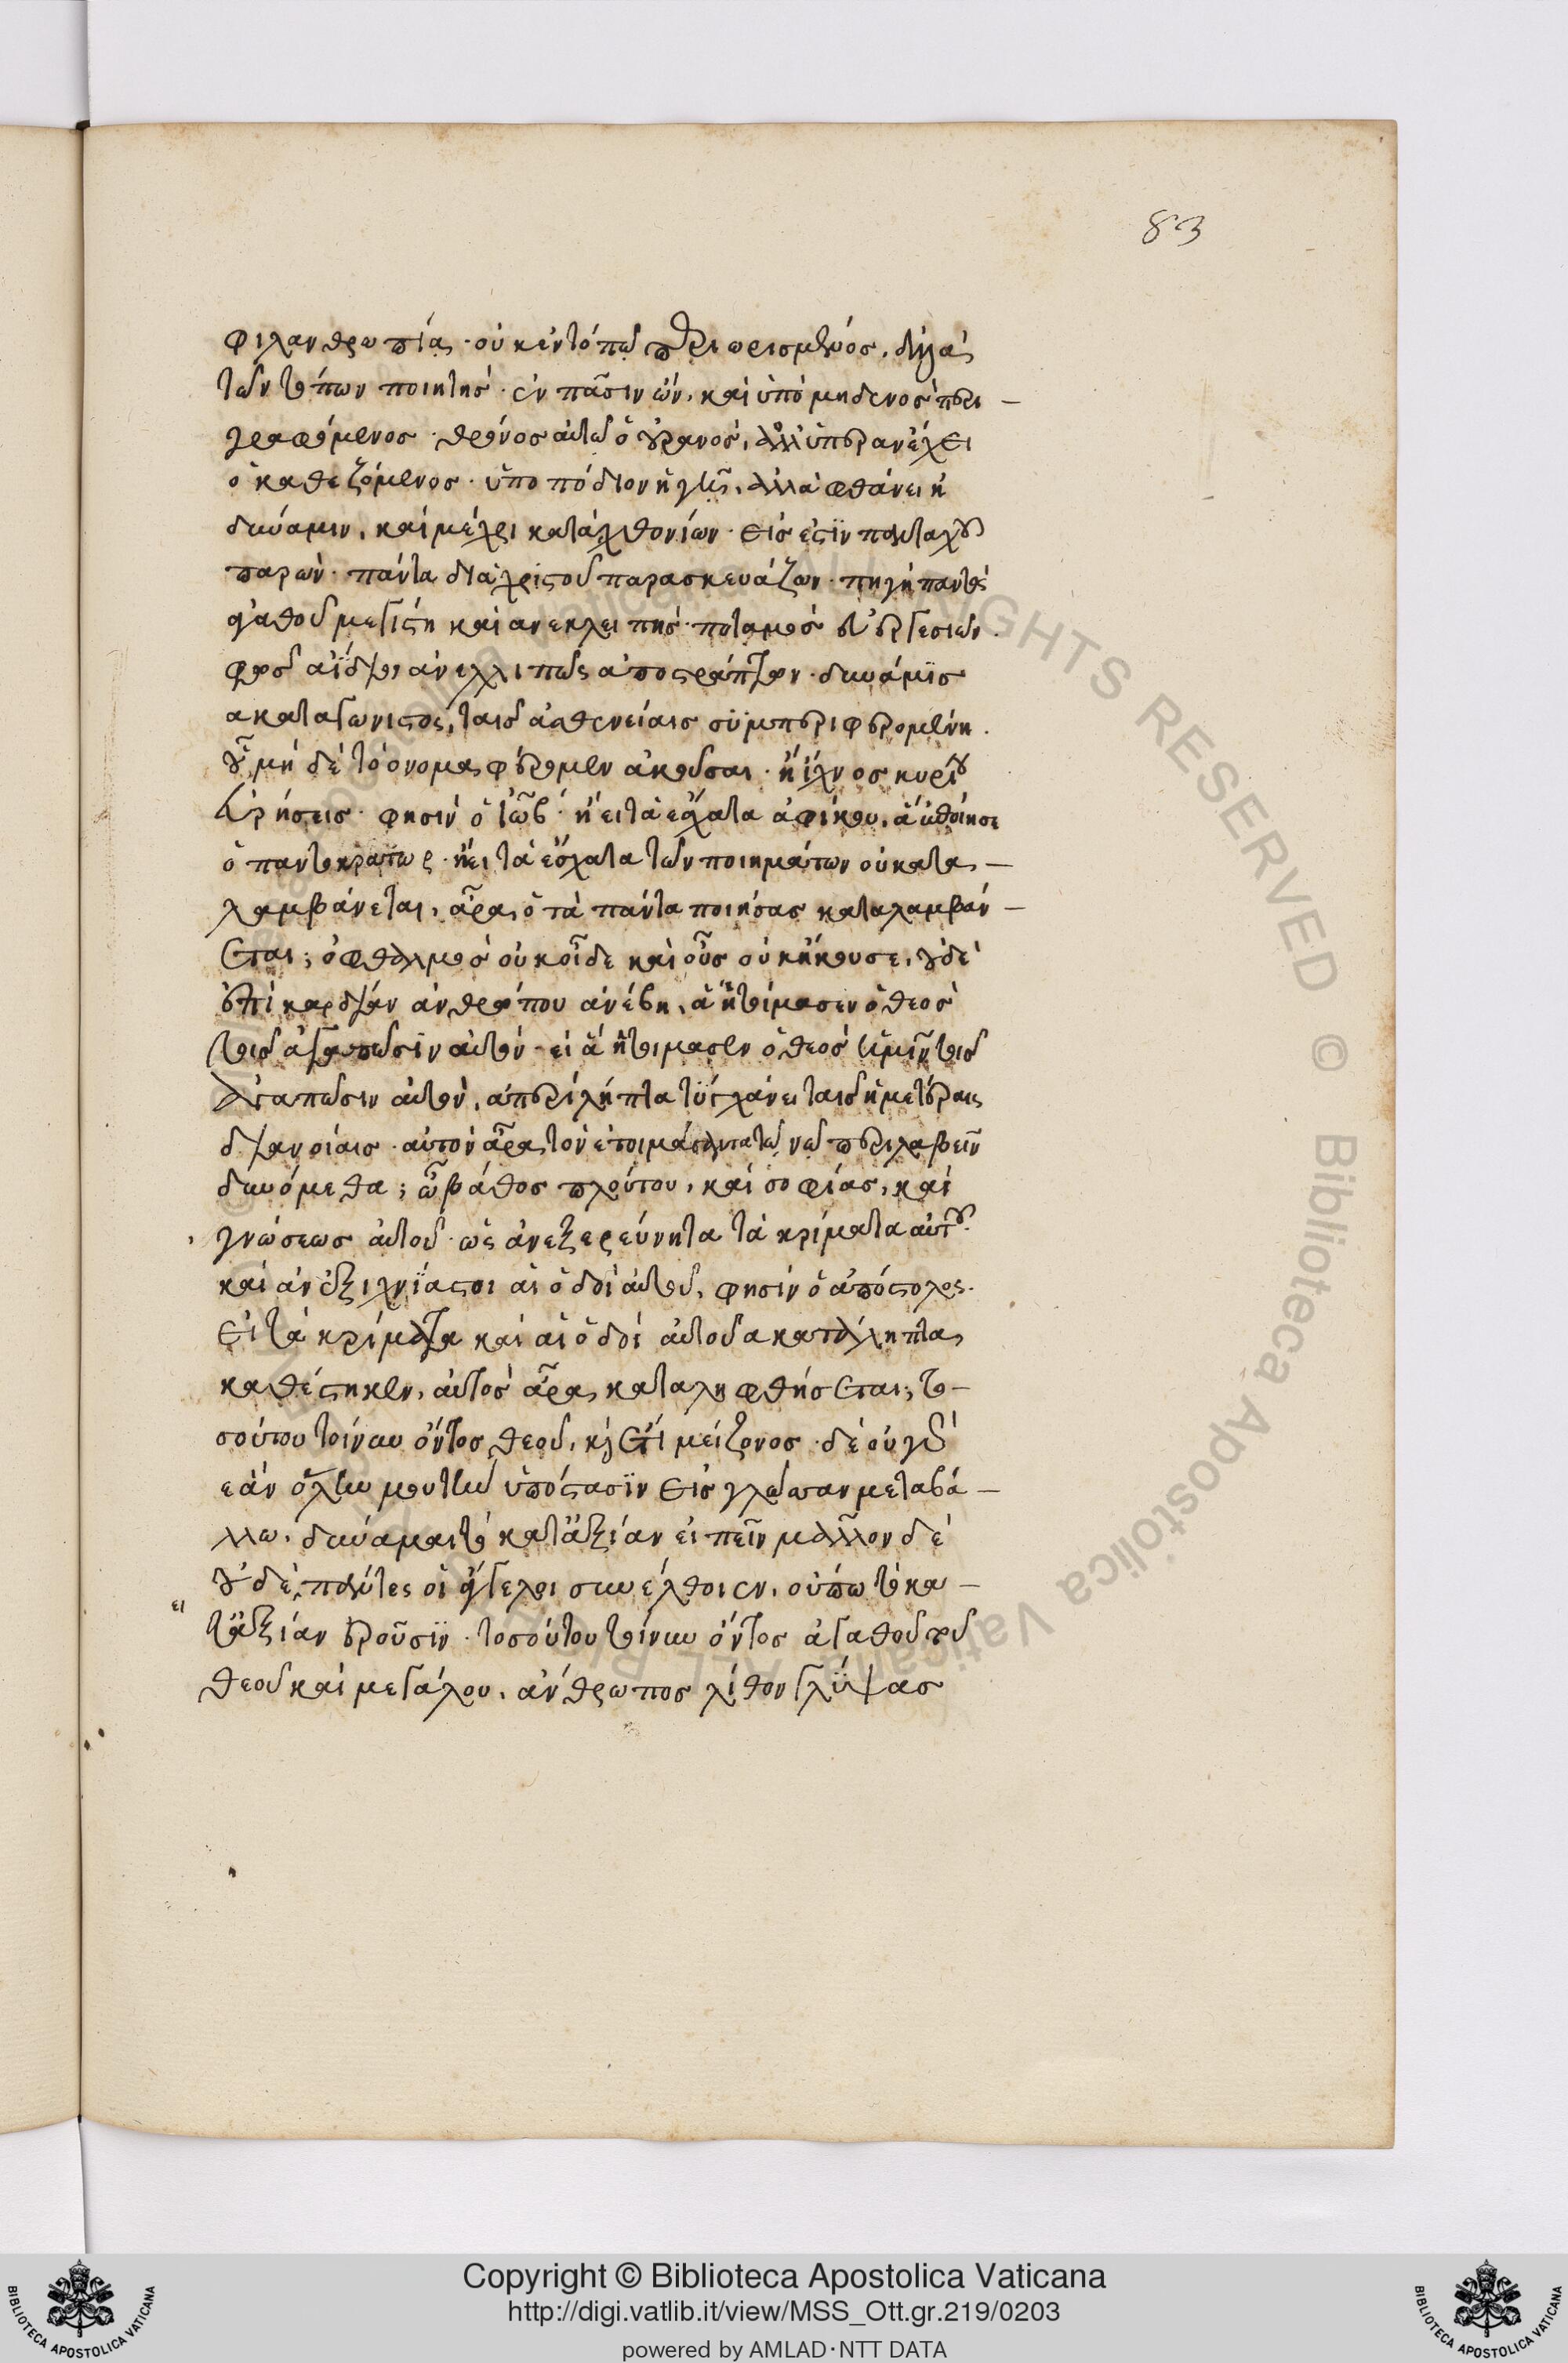 83
φιλανθρωπίας · οὐκ ἐν τόπω περιωρισμένος, ἀλλὰ
τῶν τόπων ποιητής · ἐν πᾶσιν ὤν, καὶ ὑπὸ μηδενὸς περι –
γραφόμενος · θρόνος αὐτῶ ὁ οὐρανός, ἀλλ' ὑπερανέχει
ὁ καθεζόμενος · ὑποπόδιον ἡ γῆ, ἀλλὰ φθάνει ἡ
δύναμιν, καὶ μέχρι καταχθονίων · εἷς ἐστὶν πανταχοῦ
παρών · πάντα διὰ χριστοῦ παρασκευάζων · πηγὴ παντὸς
ἀγαθοῦ μεγίστη καὶ ἀνεκλειπής · ποταμὸς εὐεργεσιῶν ·
φῶς ἀΐδιον ἀνελλιπῶς ἀποστράπτων · δύναμις
ἀκαταγώνιστος, ταῖς ἀσθενείαις συμπεριφερομένη ·
οὗ μὴ δὲ τὸ ὄνομα φέρομεν ἀκοῦσαι · ἢ ἴχνος κυρίου
εὑρήσεις · φησὶν ὁ ἰὼβ · ἢ εἰ τὰ ἔσχατα ἀφίκου, ἃ ἐποίησε
ὁ παντοκράτωρ · ἢ εἰ τὰ ἔσχατα τῶν ποιημάτων οὐ κατα –
λαμβάνεται, ἆρα ὁ τὰ πάντα ποιήσας καταλαμβάν –
εται; ὀφθαλμὸς οὐκ οἶδε καὶ οὖς οὐκ ἤκουσε, οὐδὲ
ἐπὶ καρδίαν ἀνθρώπου ἀνέβη, ἃ ἡτοίμασεν ὁ θεὸς
τοῖς ἀγαπῶσιν αὐτόν · εἰ ἃ ἡτοίμασεν ὁ θεὸς ἡμῖν τοῖς
ἀγαπῶσιν αὐτόν, ἀπερίληπτα τυγχάνει ταῖς ἡμετέραις
διανοίαις · αὐτὸν ἆρα τὸν ἑτοιμάσαντα τῶ νῶ περιλαβεῖν
δυνόμεθα; ὦ βάθος πλούτου, καὶ σοφίας, καὶ
γνώσεως αὐτοῦ · ὡς ἀνεξερεύνητα τὰ κρίματα αὐτοῦ
καὶ ἀνεξιχνίαστοι αἱ ὁδοὶ αὐτοῦ, φησὶν ὁ ἀπόστολος ·
εἰ τὰ κρίματα καὶ αἱ ὁδοὶ αὐτοῦ ἀκατάληπτα
καθέστηκεν, αὐτὸς ἆρα καταληφθήσεται; το –
σούτου τοίνυν ὄντος θεοῦ, καὶ ἔτι μείζονος · δὲ οὐ γὰρ
ἐὰν ὅλην μου τὴν ὑπόστασιν εἰς γλῶτταν μεταβά –
λλω, δύναμαι τὸ κατ' ἀξίαν εἰπεῖν μᾶλλον δὲ
οὐδὲ πάντες οἱ ἄγγελοι συνέλθοιεν, οὔπω τὸ κα –
ει
τ' ἀξίαν ἐροῦσιν · τοσούτου τοίνυν ὄντος ἀγαθοῦ τοῦ
θεοῦ καὶ μεγάλου, ἄνθρωπος λίθον γλύψας
Copyright © Biblioteca Apostolica Vaticana
http://digi.vatlib.it/view/MSS_Ott.gr.219/0203
powered by AMLAD·NTT DATA